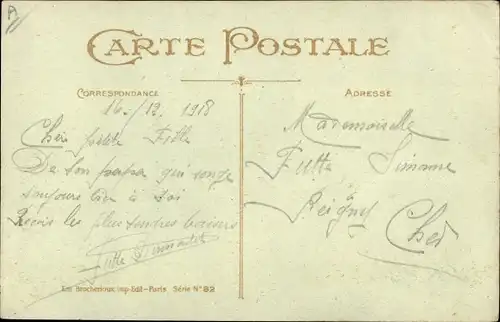 A
CARTE POSTALE
CORRESPONDANCE
16-/12. 1918
Cher petite Fille
De ton papa qui songe
toujours bien à toi
Recois les plus tendres baisers
Futte
Em. Brocherioux, Imp-Edit-Paris Série N° 82
ADRESSE
Mademoiselle
Futte Simone
à
Reigny
Cher